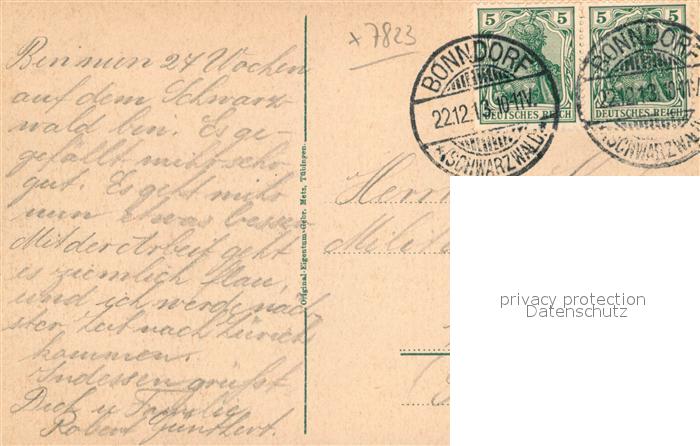 x 7823
5 5 5 5
DEUTSCHES REICH DEUTSCHES REICH
BONNDORF
22.12.13. 10-11V.
(SCHWARZWALD)
BONNDORF
22.12.13. 10-11V.
(SCHWARZWALD)
Bin nun 24 Wochen
auf dem Schwarz-
wald bin. Es ge-
gefällt mir scho
gut. Es geht mir
nun etwas besser
Mit der Arbeit geht
es ziemlich flau,
und ich werde näch
ster Zeit nach Zürich
kommen.
Indessen grüsst
Dich u Familie
Robert Günthert.
Original-Eigentum Gebr. Metz, Tübingen.
Herrn
Milit
privacy protection
Datenschutz